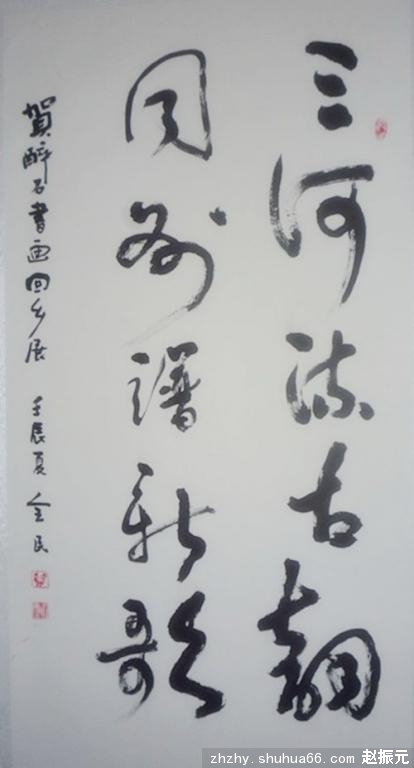 三河流古韵
同州谱新歌
賀醉石書画回乡展 壬辰夏 全民
zhzhy.shuhua66.com 赵振元